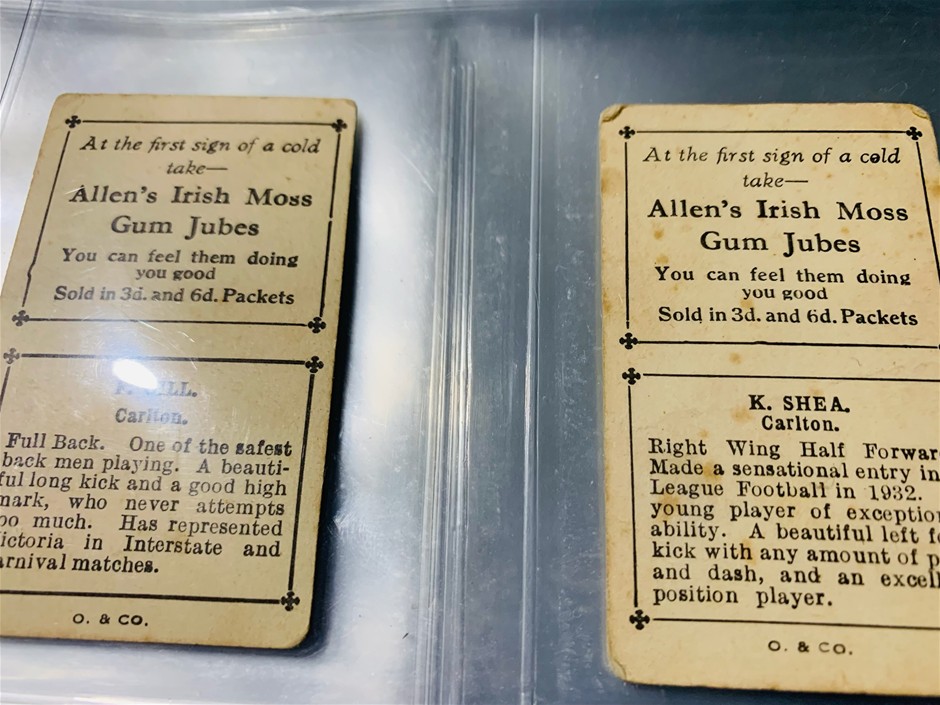 At the first sign of a cold
take—
Allen's Irish Moss
Gum Jubes
You can feel them doing
you good
Sold in 3d. and 6d. Packets
Carlton.
Full Back. One of the safest
back men playing. A beauti-
ful long kick and a good high
mark, who never attempts
oo much. Has represented
ictoria in Interstate and
arnival matches.
O. & CO.
At the first sign of a cold
take—
Allen's Irish Moss
Gum Jubes
You can feel them doing
you good
Sold in 3d. and 6d. Packets
K. SHEA.
Carlton.
Right Wing Half Forwar
Made a sensational entry in
League Football in 1932.
young player of exceptio
ability. A beautiful left f
kick with any amount of p
and dash, and an excell
position player.
O. & CO.